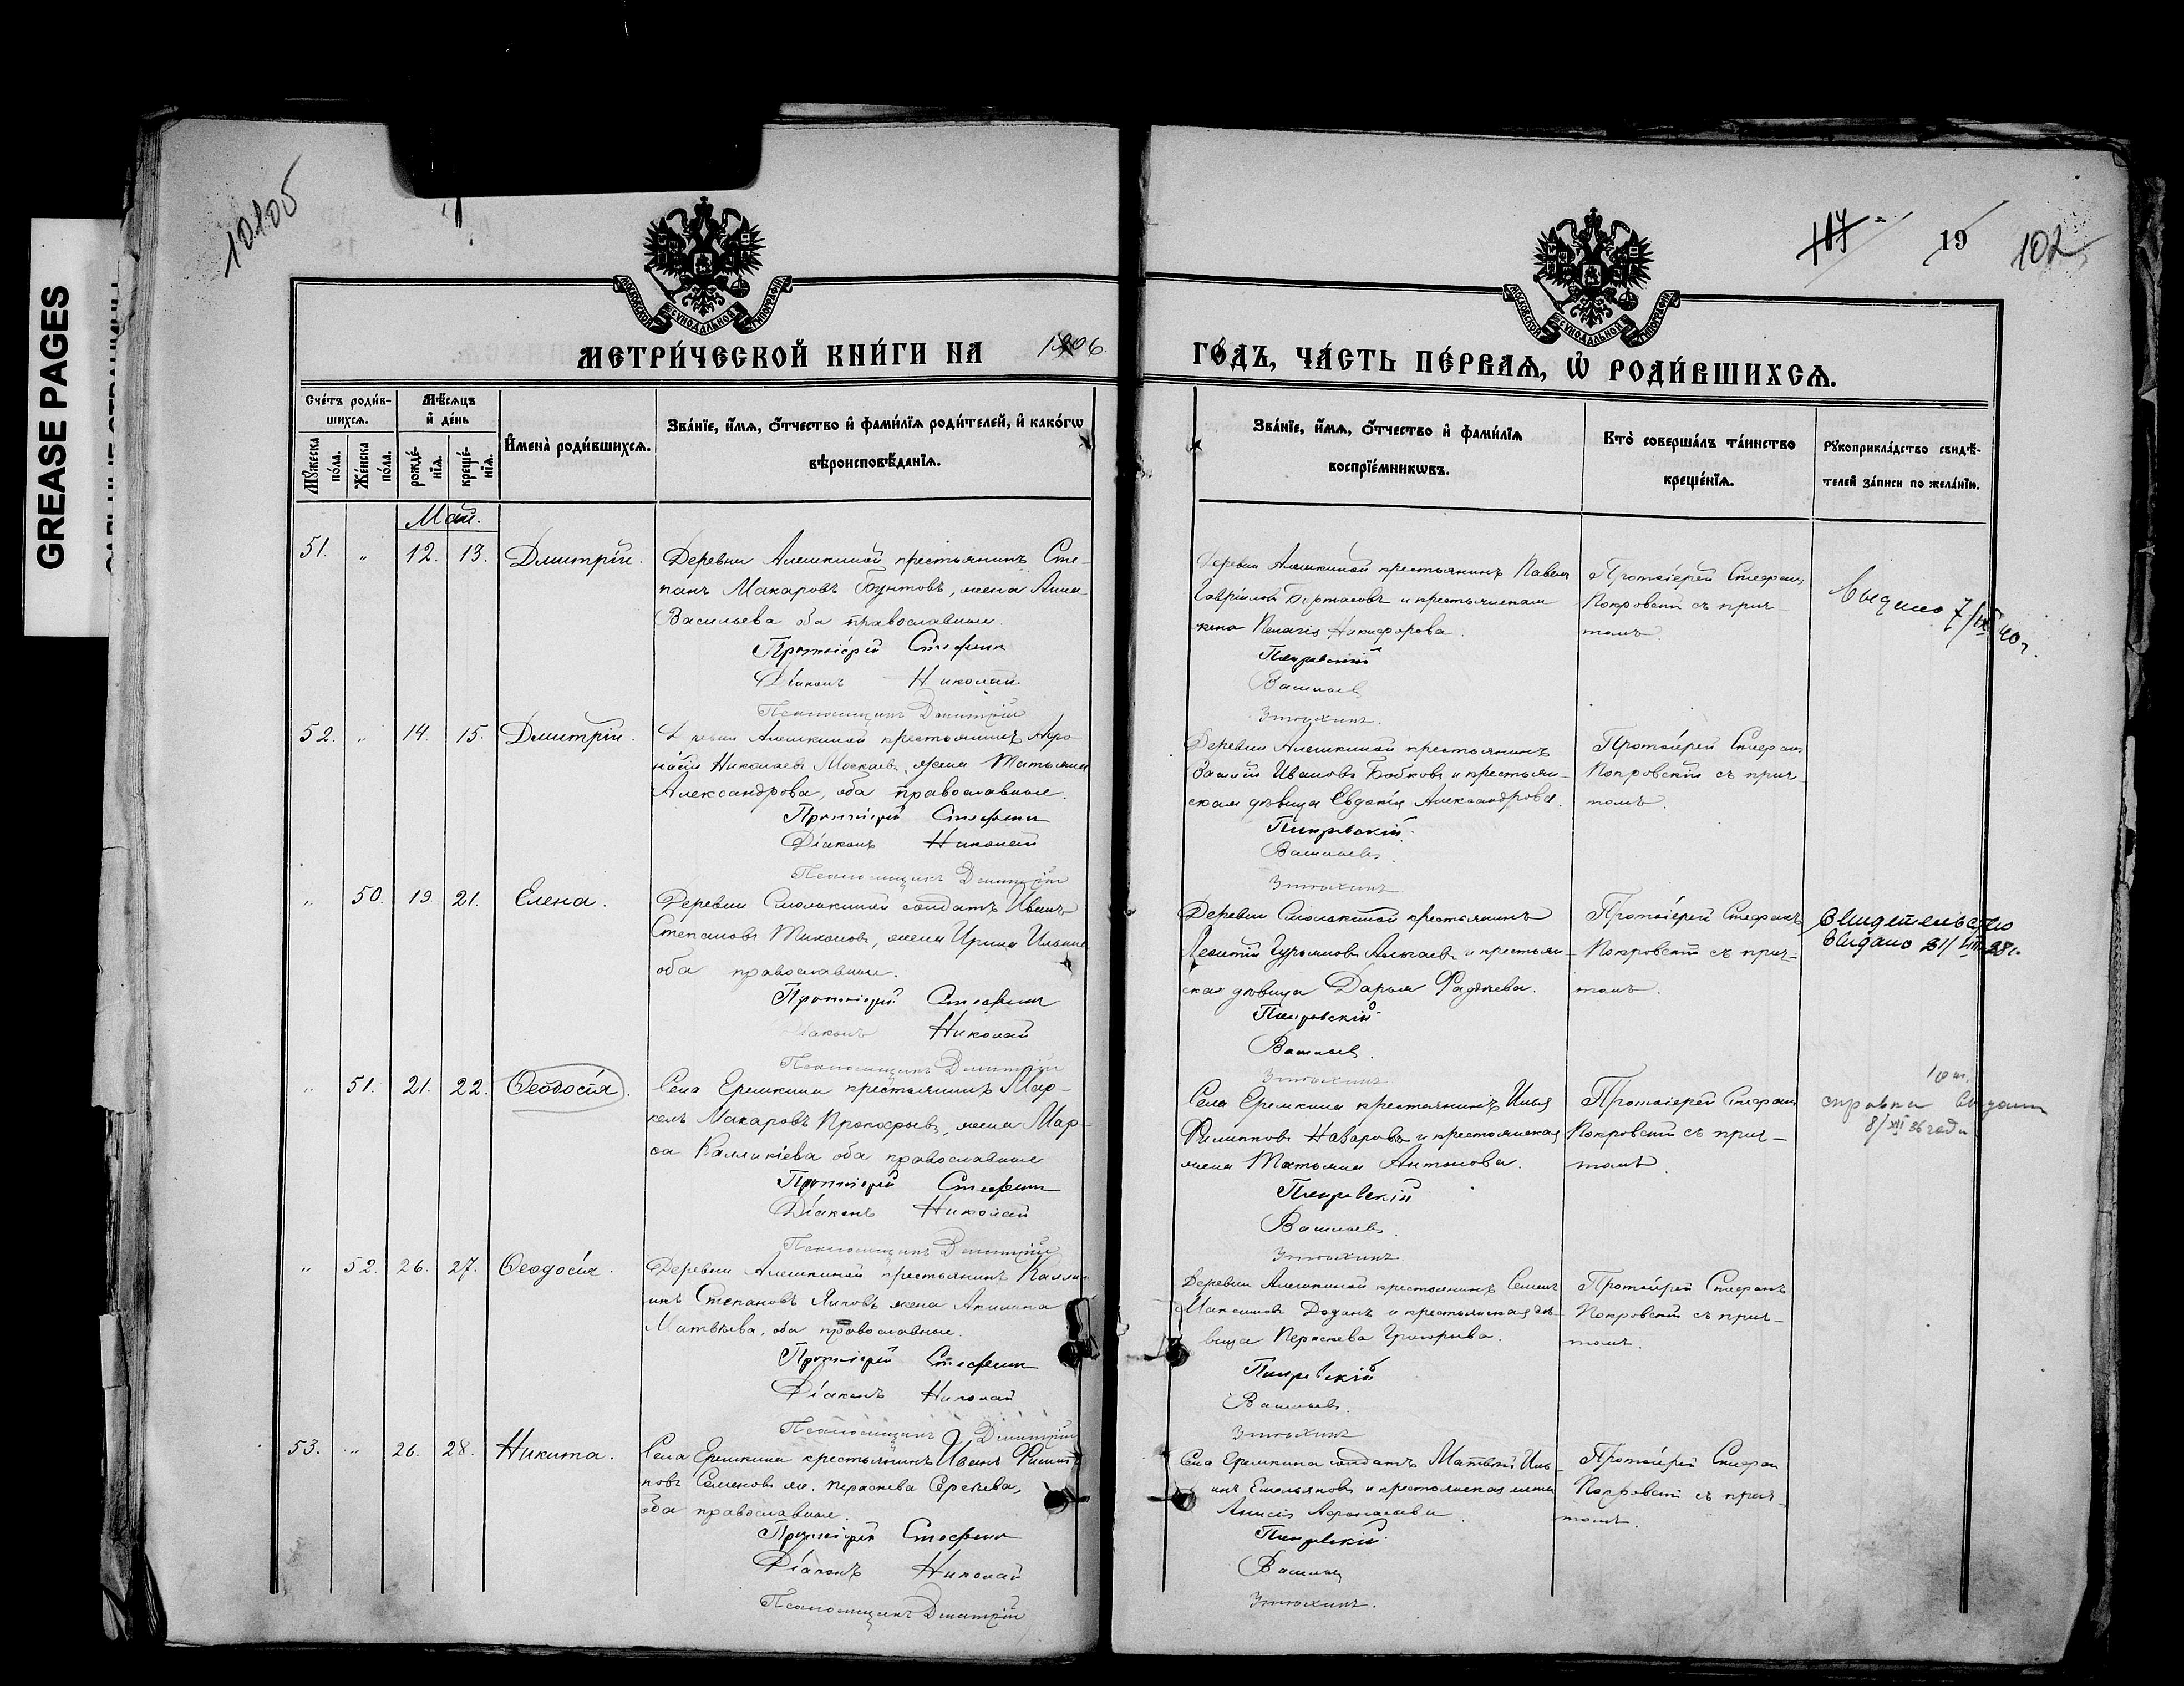 GREASE PAGES
10105
107
19
102
МОСКОВСКОЙ СѴНОДАЛЬНОЙ ТИПОГРАФІИ
МОСКОВСКОЙ СѴНОДАЛЬНОЙ ТИПОГРАФІИ
МЕТРИ́ЧЕСКОЙ КНИ́ГИ НА 1906.
ГО́ДЪ, ЧА́СТЬ ПЕ́РВАѦ, Ѡ РОДИ́ВШИХСѦ.
Сче́тъ роди́в-
шихсѧ.
Мꙋ́жеска
по́ла.
Же́нска
по́ла.
Мѣ́сѧцъ
и҆ де́нь
рожде́-
нїѧ.
креще́-
нїѧ.
И҆мена̀ роди́вшихсѧ.
Зва́нїе, и҆́мѧ, ѻ҆́тчество и҆ фами́лїѧ роди́телей, и҆ како́гѡ
вѣроисповѣ́данїѧ.
Зва́нїе, и҆́мѧ, ѻ҆́тчество и҆ фами́лїѧ
воспрїе́мникѡвъ.
Кто̀ соверша́лъ та́инство
креще́нїѧ.
Рꙋкоприкла́дство свидѣ́-
телей за́писи по жела́нїю.
Май.
51. „ 12. 13. Дмитрій.
Деревни Алешкиной крестьянинъ Сте-
панъ Макаровъ Бунтовъ, жена Анна
Васильева оба православные.
Протоіерей Стефанъ
Діаконъ Николай
Псаломщикъ Димитрій
Деревни Алешкиной крестьянинъ Павелъ
Гавріиловъ и крестьянская
жена Никифорова.
Покровскій
Васильевъ
Протоіерей Стефанъ
Покровскій съ прич-
томъ.
Выдано 7/IX 40 г.
52. „ 14. 15. Дмитрій.
Деревни Алешкиной крестьянинъ Афо-
насій Николаевъ Москаевъ, жена Татьяна
Александрова, оба православные.
Протоіерей Стефанъ
Діаконъ Николай
Псаломщикъ Димитрій
Деревни Алешкиной крестьянинъ
Василій Ивановъ Бобковъ и крестьян-
ская дѣвица Евдокія Александрова.
Покровскій
Васильевъ.
Протоіерей Стефанъ
Покровскій съ прич-
томъ.
„ 50. 19. 21. Елена.
Деревни Смолькиной солдатъ Иванъ
Степановъ Тихоновъ, жена Ирина Ильина
оба православные.
Протоіерей Стефанъ
Діаконъ Николай
Псаломщикъ Димитрій
Деревни Смолькиной крестьянинъ
и крестьян-
ская дѣвица Дарья Фадѣева.
Покровскій
Васильевъ.
Протоіерей Стефанъ
Покровскій съ прич-
томъ.
Свидетельство
выдано 21/VIII 38 г.
„ 51. 21. 22. Ѳеодосія.
Села Еремкина крестьянинъ Мар-
келъ Макаровъ Прокофьевъ, жена Мар-
ѳа Калликіева оба православные
Протоіерей Стефанъ
Діаконъ Николай
Псаломщикъ Димитрій
Села Еремкина крестьянинъ Илья
Филипповъ Назаровъ и крестьянская
жена Татьяна Антонова.
Покровскій
Васильевъ.
Протоіерей Стефанъ
Покровскій съ прич-
томъ.
справка выдана
8/XII 36 года
„ 52. 26. 27. Ѳеодосія.
Деревни Алешкиной крестьянинъ Калли-
никъ Степановъ жена Акилина
Матвѣева, оба православные.
Протоіерей Стефанъ
Діаконъ Николай
Псаломщикъ Димитрій
Деревни Алешкиной крестьянинъ Семенъ
Максимовъ и крестьянская дѣ-
вица Параскева Григорьева.
Покровскій
Васильевъ.
Протоіерей Стефанъ
Покровскій съ прич-
томъ.
53. „ 26. 28. Никита.
Села Еремкина крестьянинъ Иванъ Филип-
повъ Семеновъ ж. Параскева Сергѣева,
оба православные.
Протоіерей Стефанъ
Діаконъ Николай
Псаломщикъ Димитрій
Села Еремкина солдатъ Матвѣй Иль-
инъ Емельяновъ и крестьянская жена
Анисія Афонасьева
Покровскій
Васильевъ
Протоіерей Стефанъ
Покровскій съ прич-
томъ.